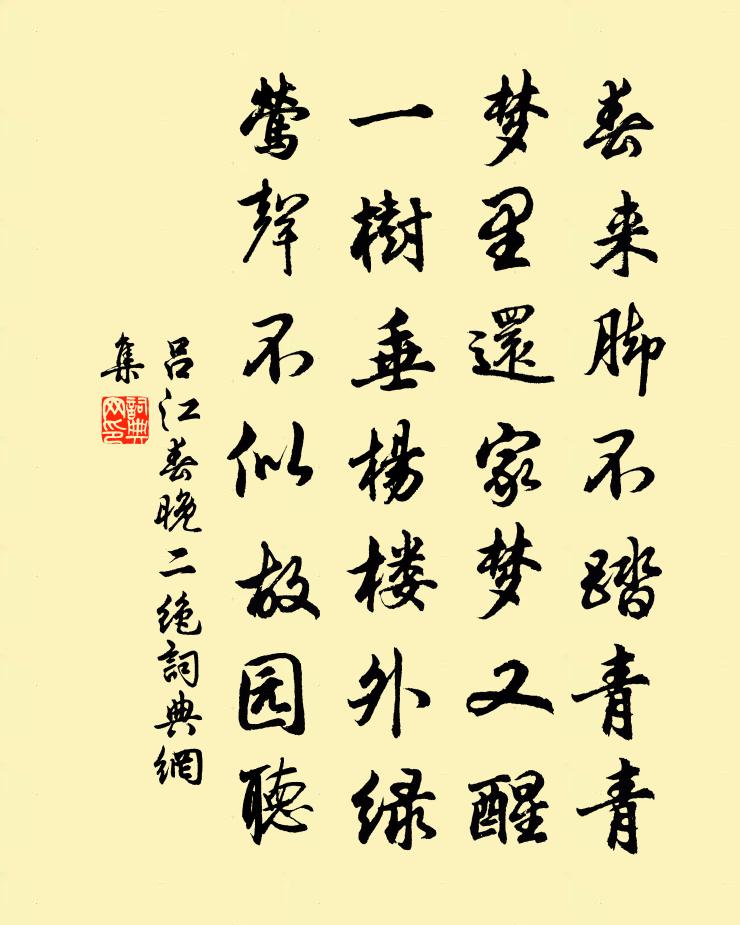 春来脚不踏青青
梦里還家梦又醒
一樹垂楊楼外绿
莺聲不似故园聽
吕江春晚二绝詞典網
集
詞典网印